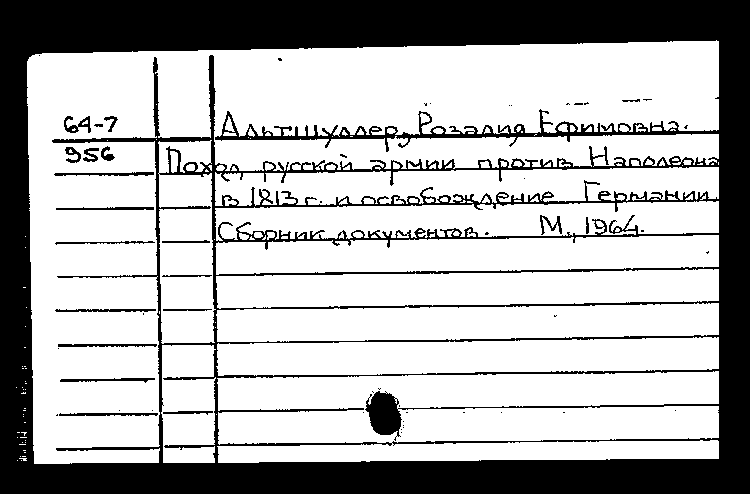 64-7 Альтшуллер, Розалия Ефимовна.
956 Поход русской армии против Наполеона
в 1813 г. и освобождение Германии.
Сборник документов. М., 1964.